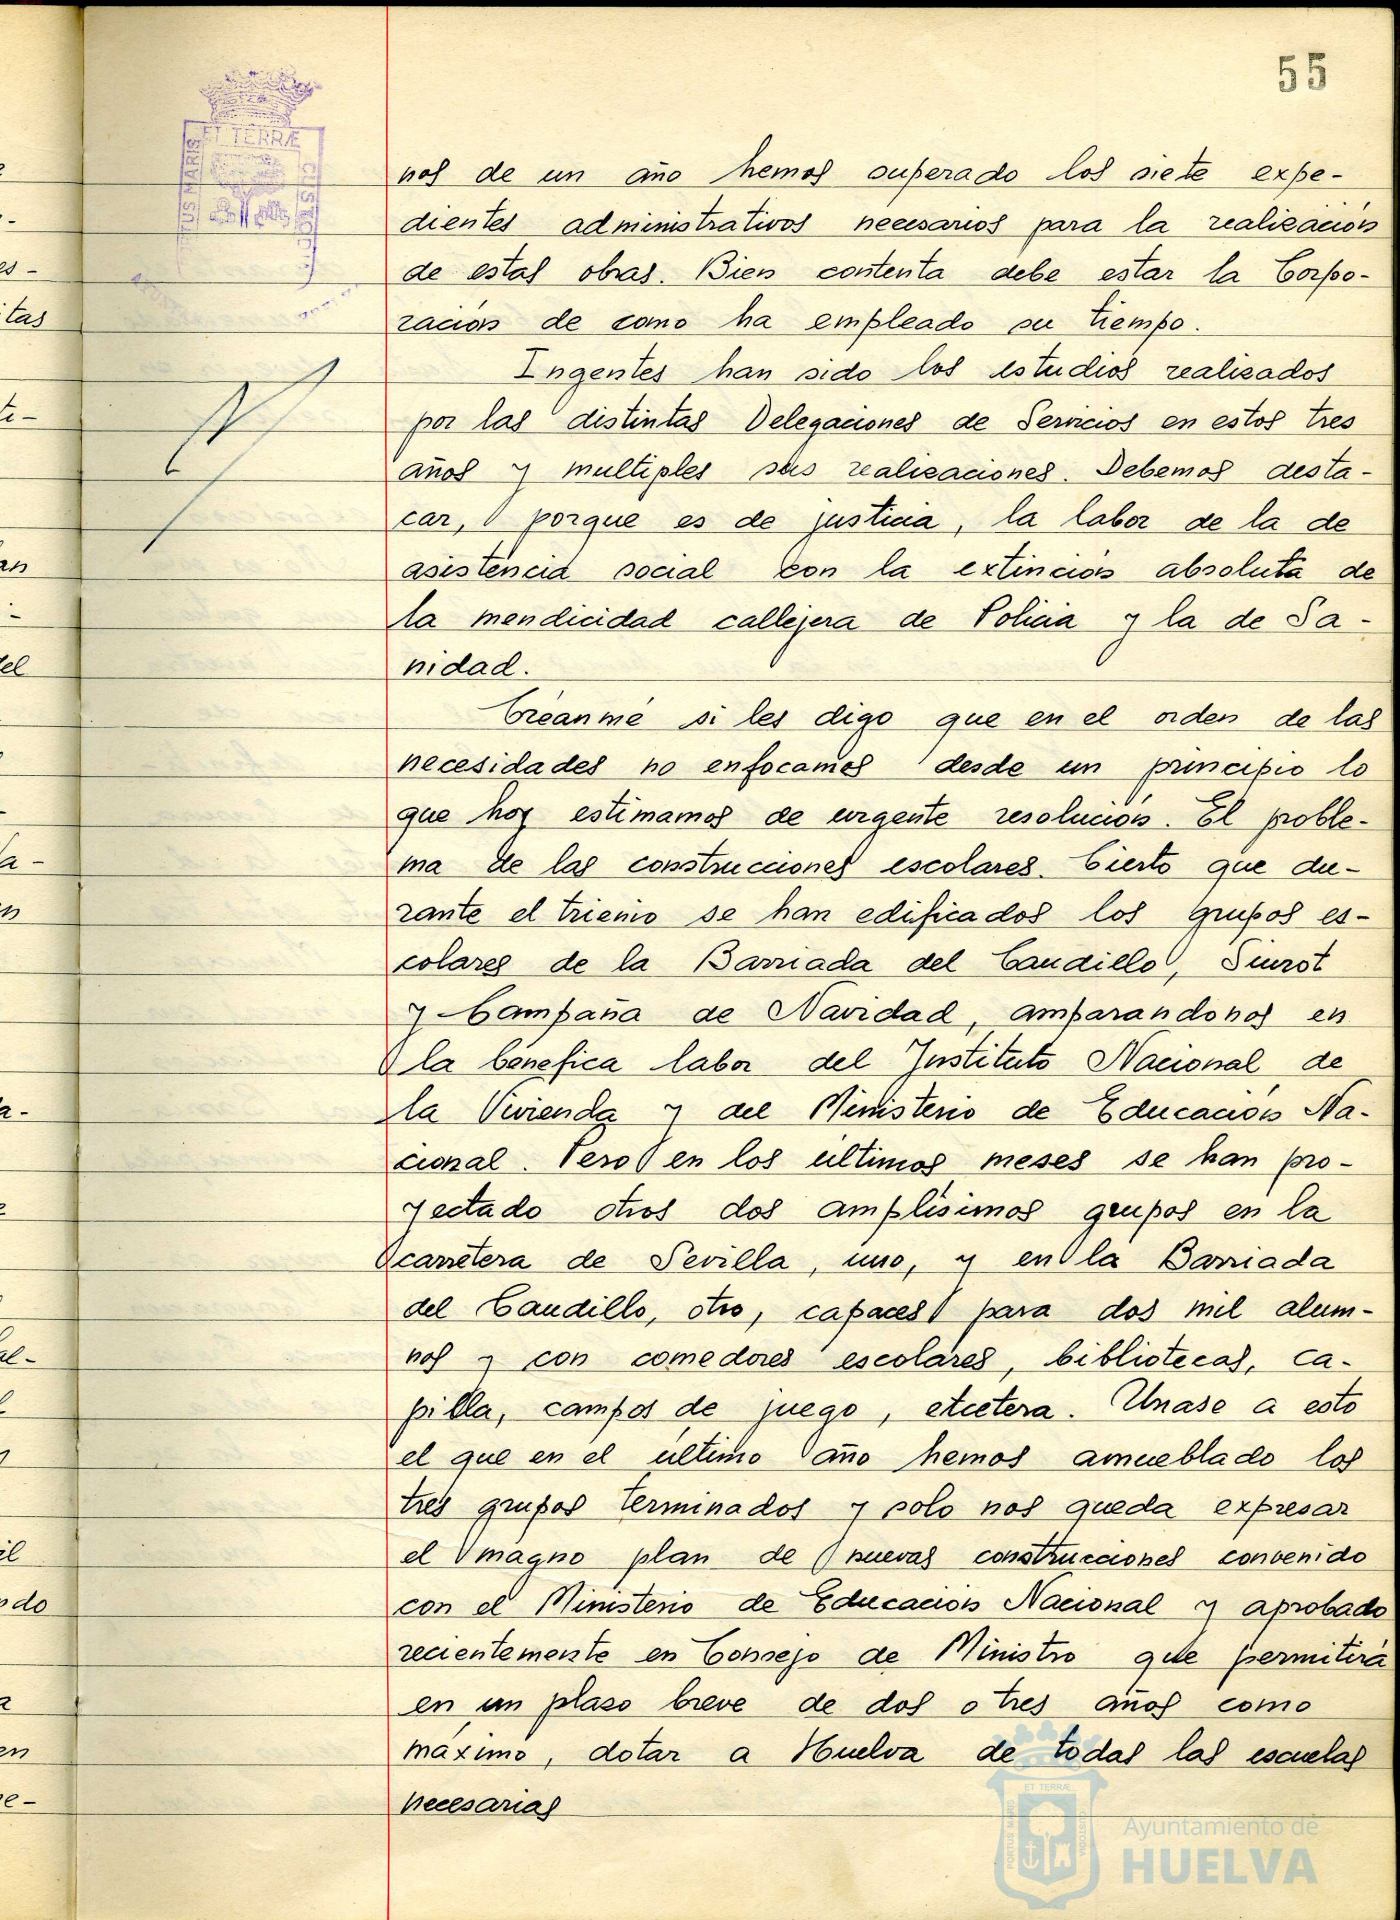 55
ET TERRÆ
nos de un año hemos superado los siete expe-
dientes administrativos necesarios para la realización
de estas obras. Bien contenta debe estar la Corpo-
ración de como ha empleado su tiempo.
Ingentes han sido los estudios realizados
por las distintas Delegaciones de Servicios en estos tres
años y multiples sus realizaciones. Debemos desta-
car, porque es de justicia, la labor de la de
asistencia social con la extinción absoluta de
la mendicidad callejera de Policia y la de Sa-
nidad.
Créanme si les digo que en el orden de las
necesidades no enfocamos desde un principio lo
que hoy estimamos de urgente resolución. El proble-
ma de las construcciones escolares. Cierto que du-
rante el trienio se han edificados los grupos es-
colares de la Barriada del Caudillo, Siurot
y Campaña de Navidad, amparandonos en
la benefica labor del Instituto Nacional de
la Vivienda y del Ministerio de Educación Na-
cional. Pero en los últimos meses se han pro-
yectado otros dos amplísimos grupos en la
carretera de Sevilla, uno, y en la Barriada
del Caudillo, otro, capaces para dos mil alum-
nos y con comedores escolares, bibliotecas, ca-
pilla, campos de juego, etcetera. Unase a esto
el que en el último año hemos amueblado los
tres grupos terminados y solo nos queda expresar
el magno plan de nuevas construcciones convenido
con el Ministerio de Educación Nacional y aprobado
recientemente en Consejo de Ministro que permitirá
en un plaso breve de dos o tres años como
máximo, dotar a Huelva de todas las escuelas
necesarias
Ayuntamiento de
HUELVA